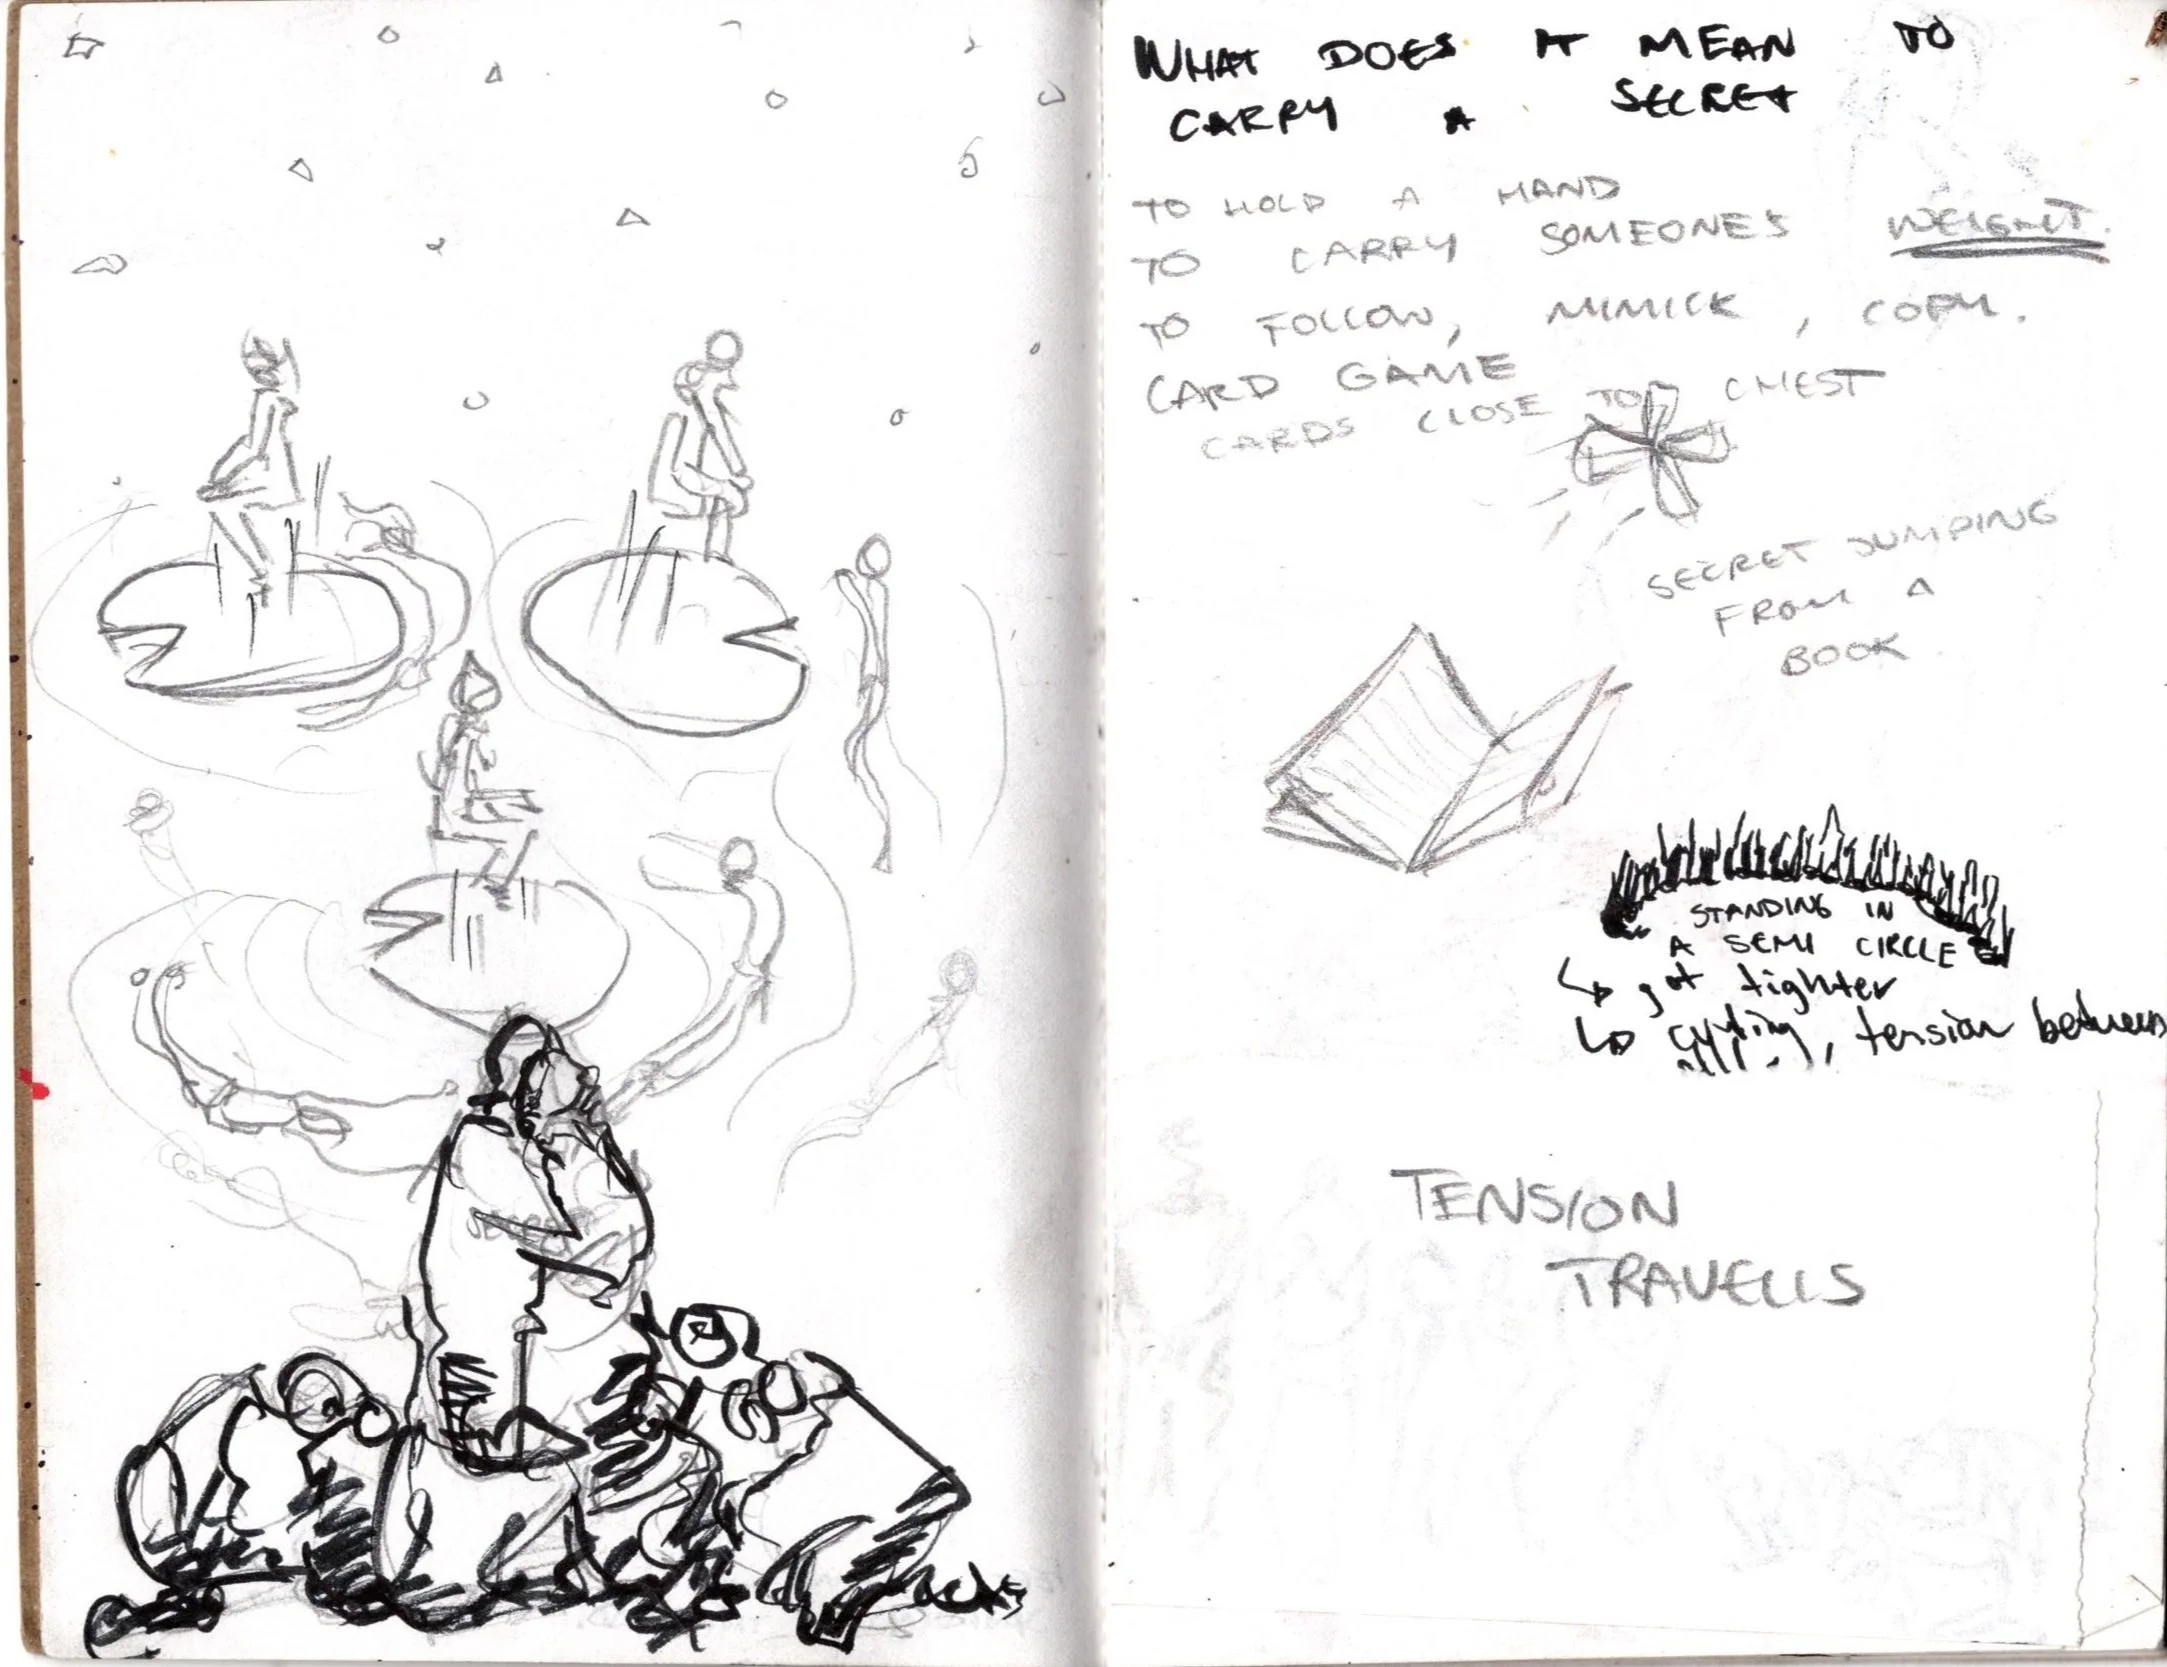 WHAT DOES IT MEAN TO
CARRY A SECRET
TO HOLD A HAND
TO CARRY SOMEONE'S WEIGHT.
TO FOLLOW, MIMICK, COPY.
CARD GAME
CARDS CLOSE TO CHEST
SECRET JUMPING
FROM A
BOOK.
STANDING IN
A SEMI CIRCLE
↳ got tighter
↳ , tension between
TENSION
TRAVELLS